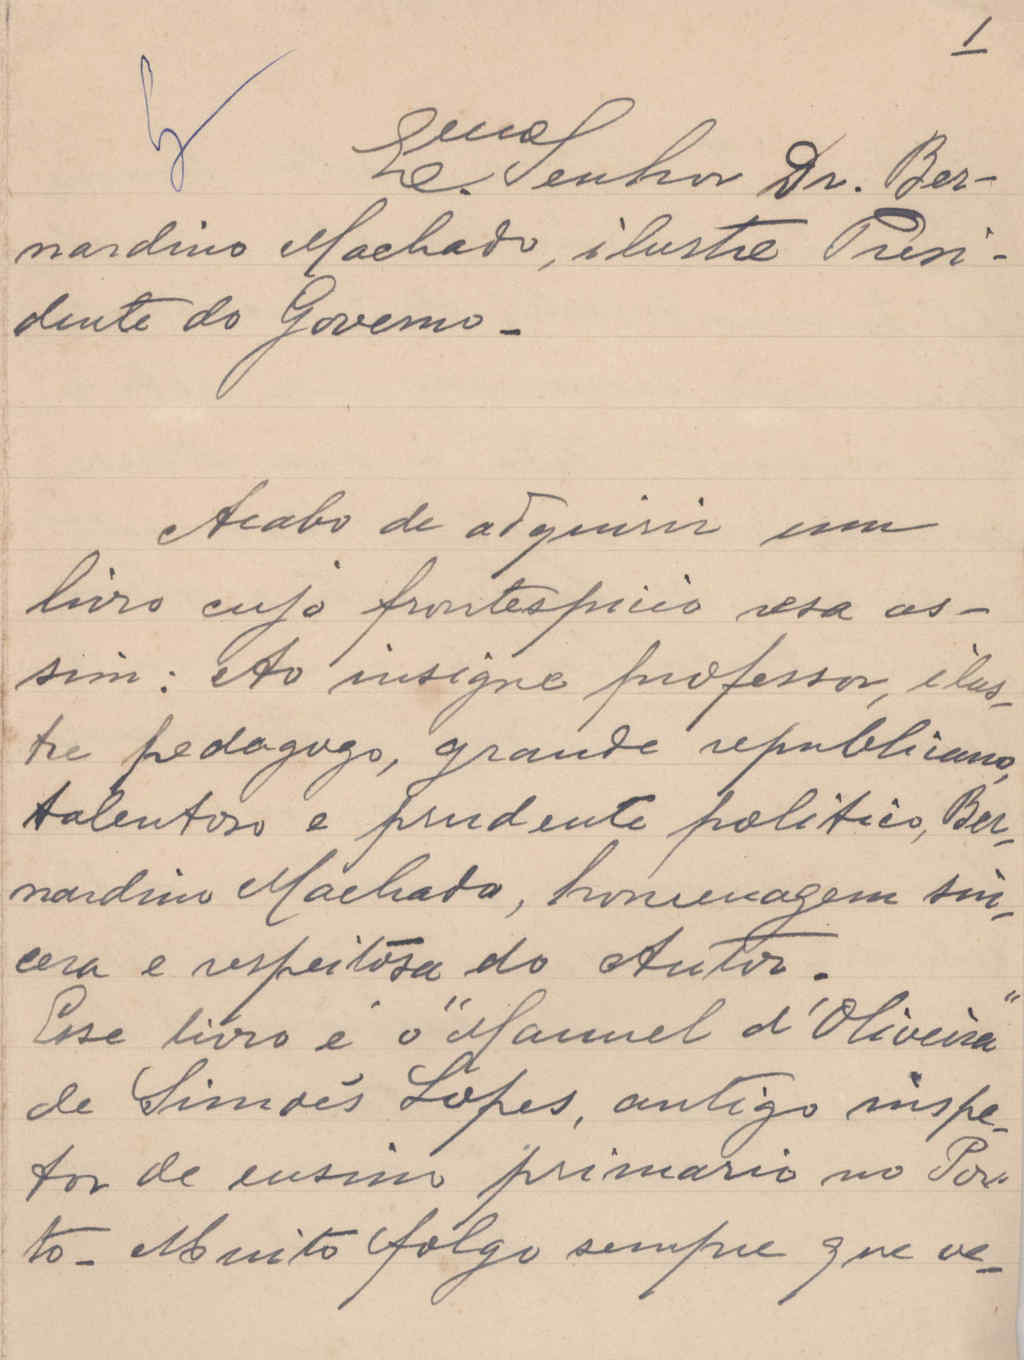 1
Exmo Senhor Dr. Ber-
nardino Machado, ilustre Presi-
dente do Governo -
Acabo de adquirir um
livro cujo frontespicio resa as-
sim: Ao insigne professor, ilus-
tre pedagogo, grande republicano,
talentoso e prudente politico, Ber-
nardino Machado, homenagem sin-
cera e respeitosa do Autor.
Esse livro é o "Manuel d'Oliveira"
de Simões Lopes, antigo inspe-
tor de ensino primario no Por-
to - Muito folgo sempre que ve-